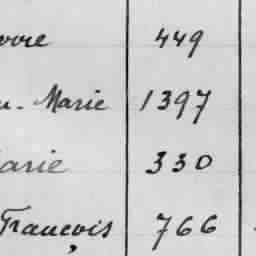 449
Marie 1397
arie 330
François 766